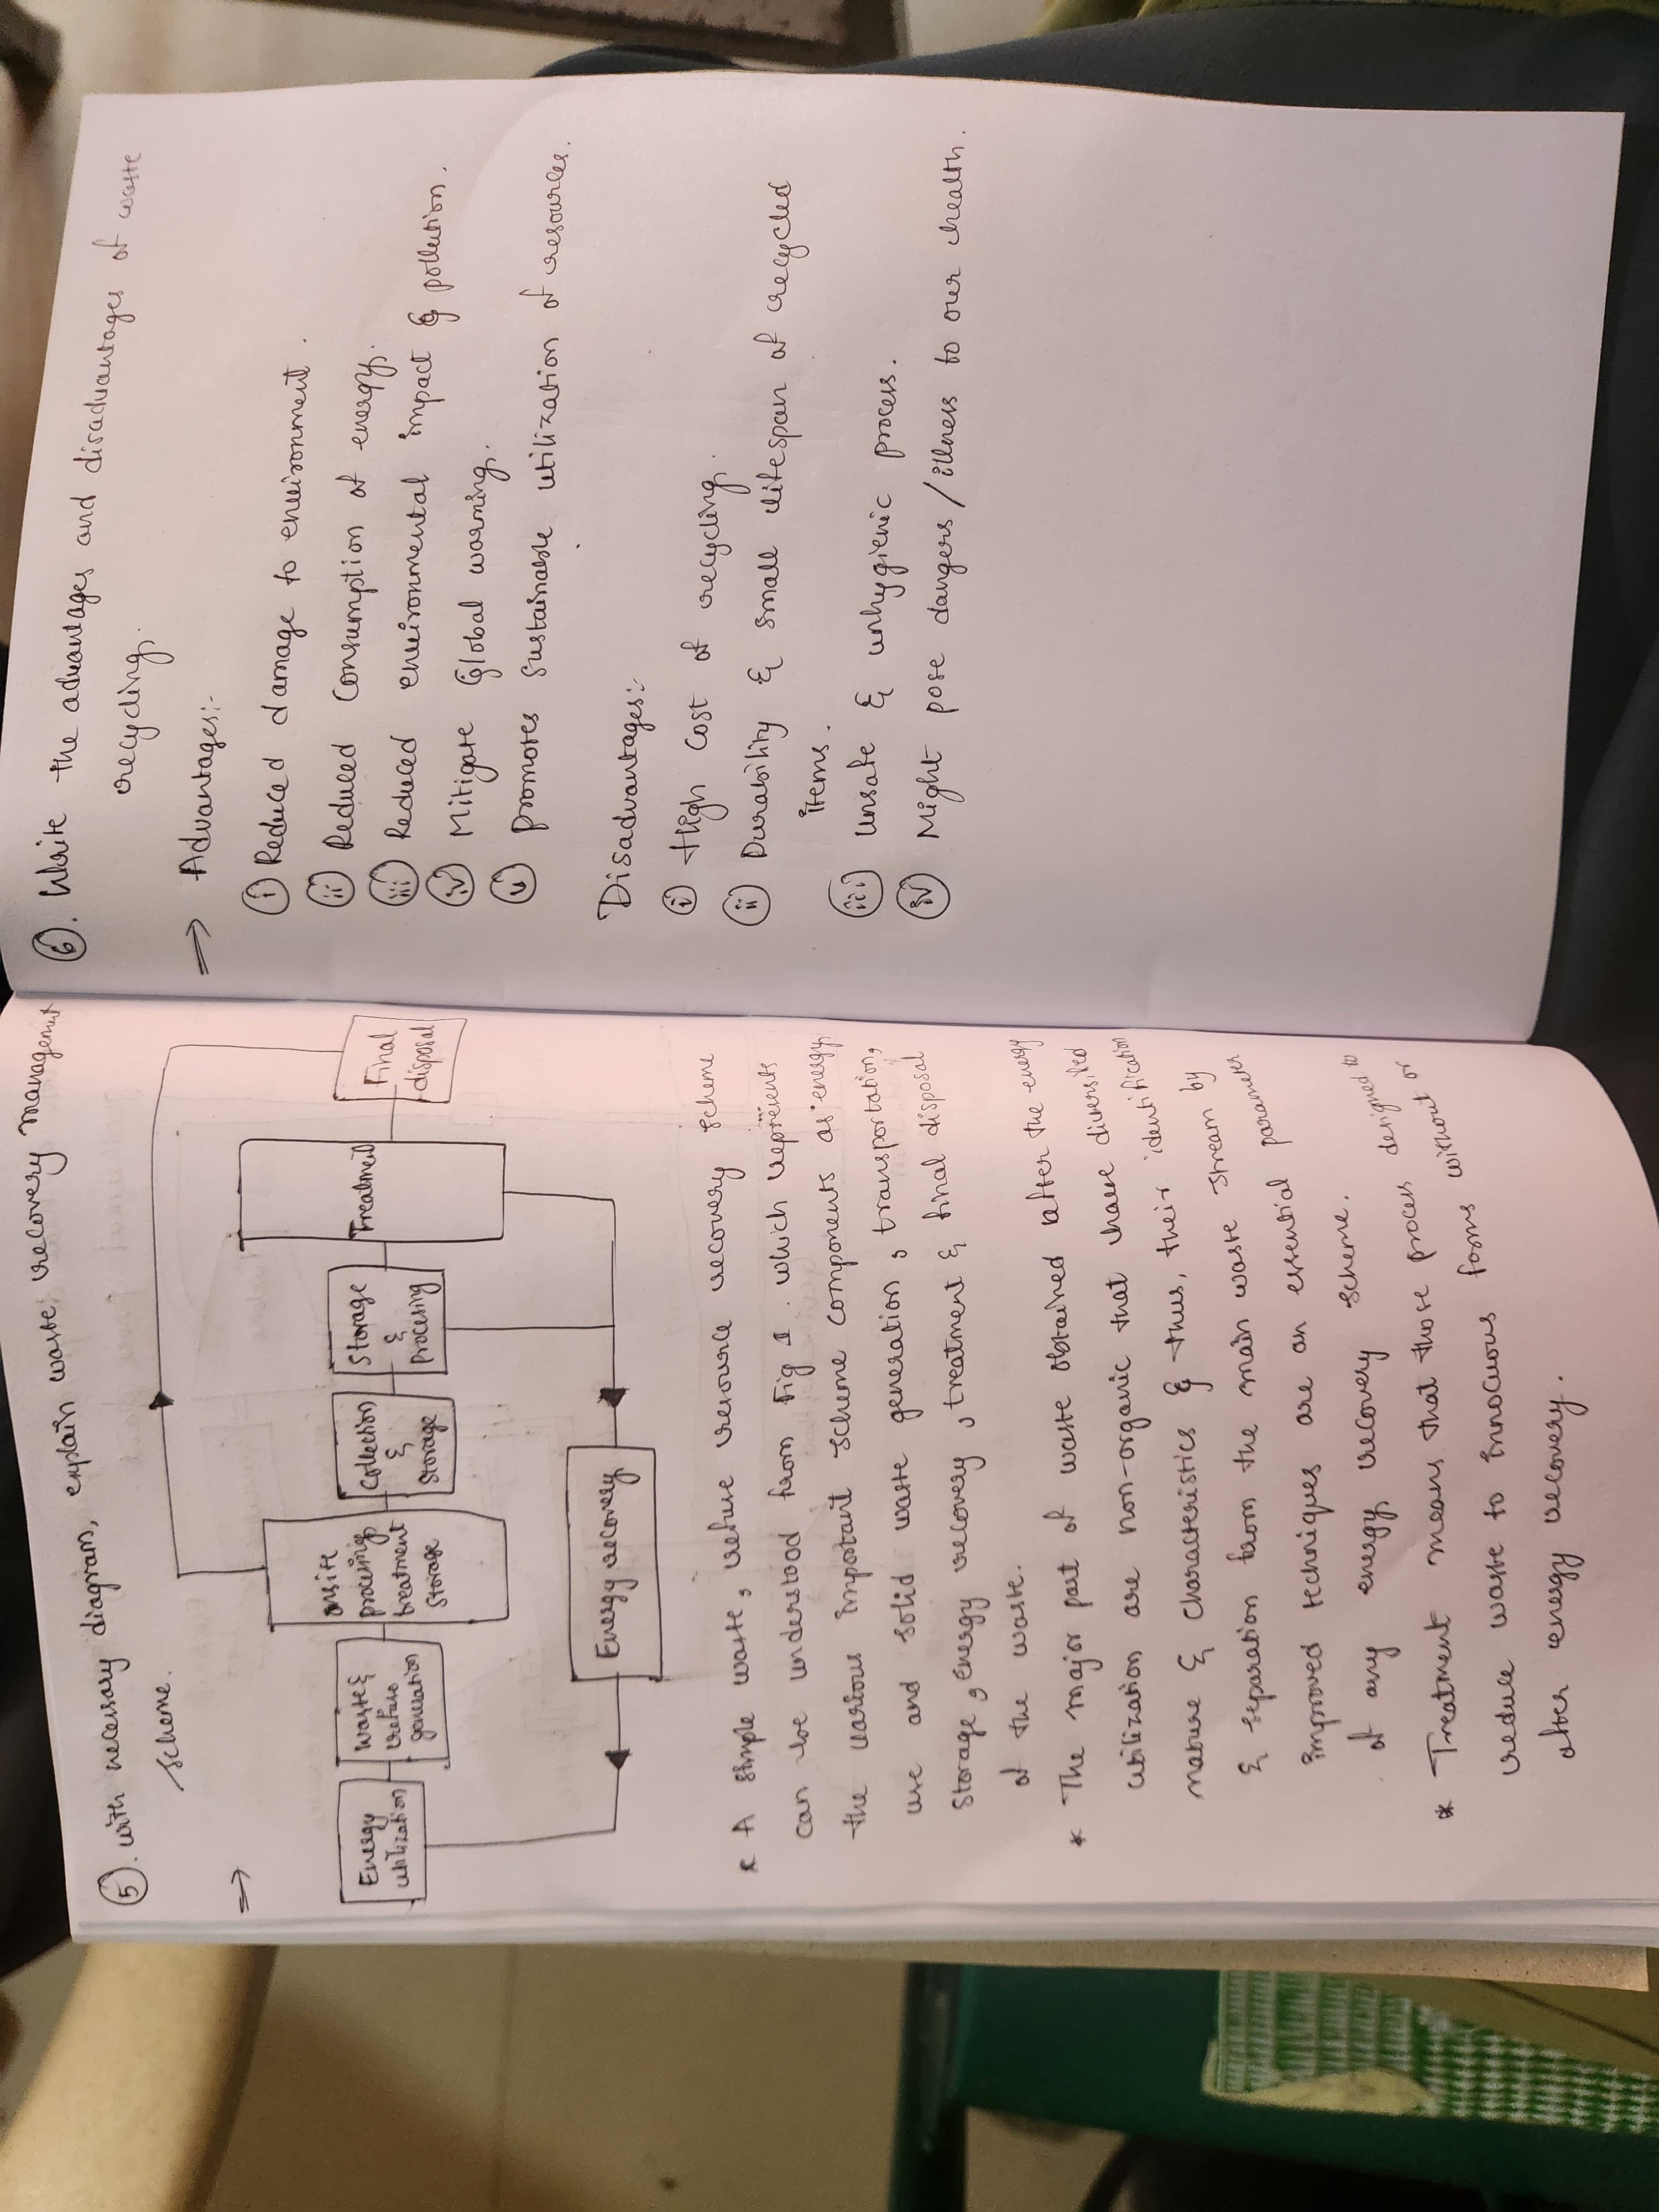 ⑤. with necessary diagram, explain waste recovery management
scheme.
⇒
Energy
utilization
Waste &
refuse
generation
onsite
procesing
treatment
storage
Collection
&
storage
Storage
&
Procesing
Treatment
Final
disposal
Energy recovery
* A simple waste, refuse resource recovery scheme
can be understood from Fig 1. which represents
the various important scheme components as energy
use and solid waste generation, transportation,
storage, energy recovery, treatment & final disposal
of the waste.
* The major part of waste obtained after the energy
utilization are non-organic that have diversified
nature & characteristics & thus, their identification
& separation from the main waste stream by
improved techniques are an essential parameter
of any energy recovery scheme.
* Treatment means that those process designed to
reduce waste to innocuous forms without or
after energy recovery.
⑥. Write the advantages and disadvantages of waste
recycling.
⇒ Advantages:-
i Reduced damage to environment.
ii Reduced consumption of energy.
iii Reduced environmental impact & pollution.
iv Mitigate Global warming.
v promotes sustainable utilization of resources.
Disadvantages:-
i High cost of recycling.
ii Durability & small lifespan of recycled
items.
iii unsafe & unhygienic process.
iv Might pose dangers/illness to our health.